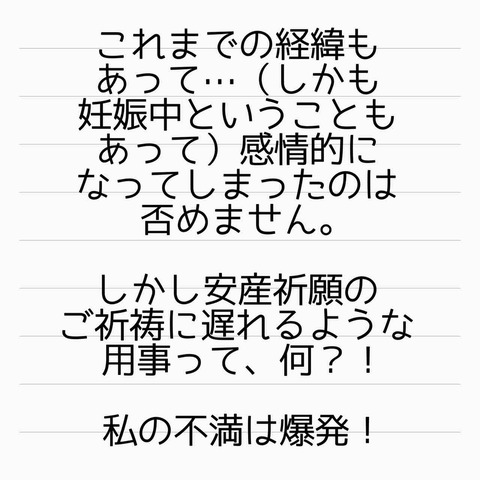 これまでの経緯も
あって…（しかも
妊娠中ということも
あって）感情的に
なってしまったのは
否めません。
しかし安産祈願の
ご祈祷に遅れるような
用事って、何？！
私の不満は爆発！